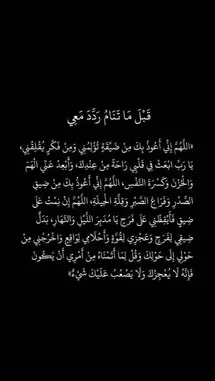 قَبْلَ مَا تَنَامُ رَدَّدَ مَعِي
«اللَّهُمَّ إِنِّي أَعُوذُ بِكَ مِنْ ضَيْقَةٍ تُؤْلِمُنِي وَمِنْ فَكْرٍ يُقْلِقُنِي،
يَا رَبِّ ابْعَثْ فِي قَلْبِي رَاحَةً مِنْ عِنْدِكَ، وَأَبْعِدْ عَنِّي الْهَمَّ
وَالْحُزْنَ وَكَسْرَةَ النَّفْسِ، اللَّهُمَّ إِنِّي أَعُوذُ بِكَ مِنْ ضِيقِ
الصَّدْرِ وَفَرَاغِ الصَّبْرِ وَقِلَّةِ الْحِيلَةِ، اللَّهُمَّ إِنْ نِمْتُ عَلَى
ضِيقٍ فَأَيْقِظْنِي عَلَى فَرَجٍ يَا مُدَبِّرَ اللَّيْلِ وَالنَّهَارِ، بَدِّلْ
ضِيقِي لِفَرَجٍ وَعَجْزِي لِقُوَّةٍ وَأَحْلَامِي لِوَاقِعٍ وَاخْرُجْنِي مِنْ
حَوْلِي إِلَى حَوْلِكَ وَقُلْ لِمَا أَتَمَنَّاهُ مِنْ أَمْرِي أَنْ يَكُونَ
فَإِنَّهُ لَا يُعْجِزُكَ وَلَا يَصْعُبُ عَلَيْكَ شَيْءٌ»